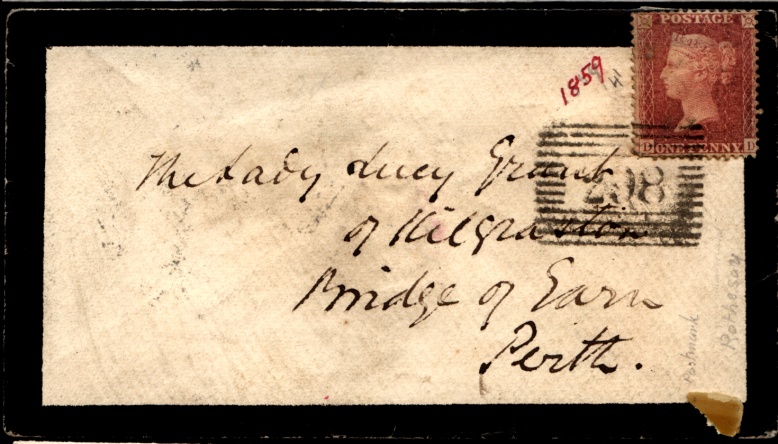 POSTAGE
D ONE PENNY D
1859
The Lady Lucy Grant
298
of Kilgraston
Bridge of Earn
Perth.
Postmark
Rothesay